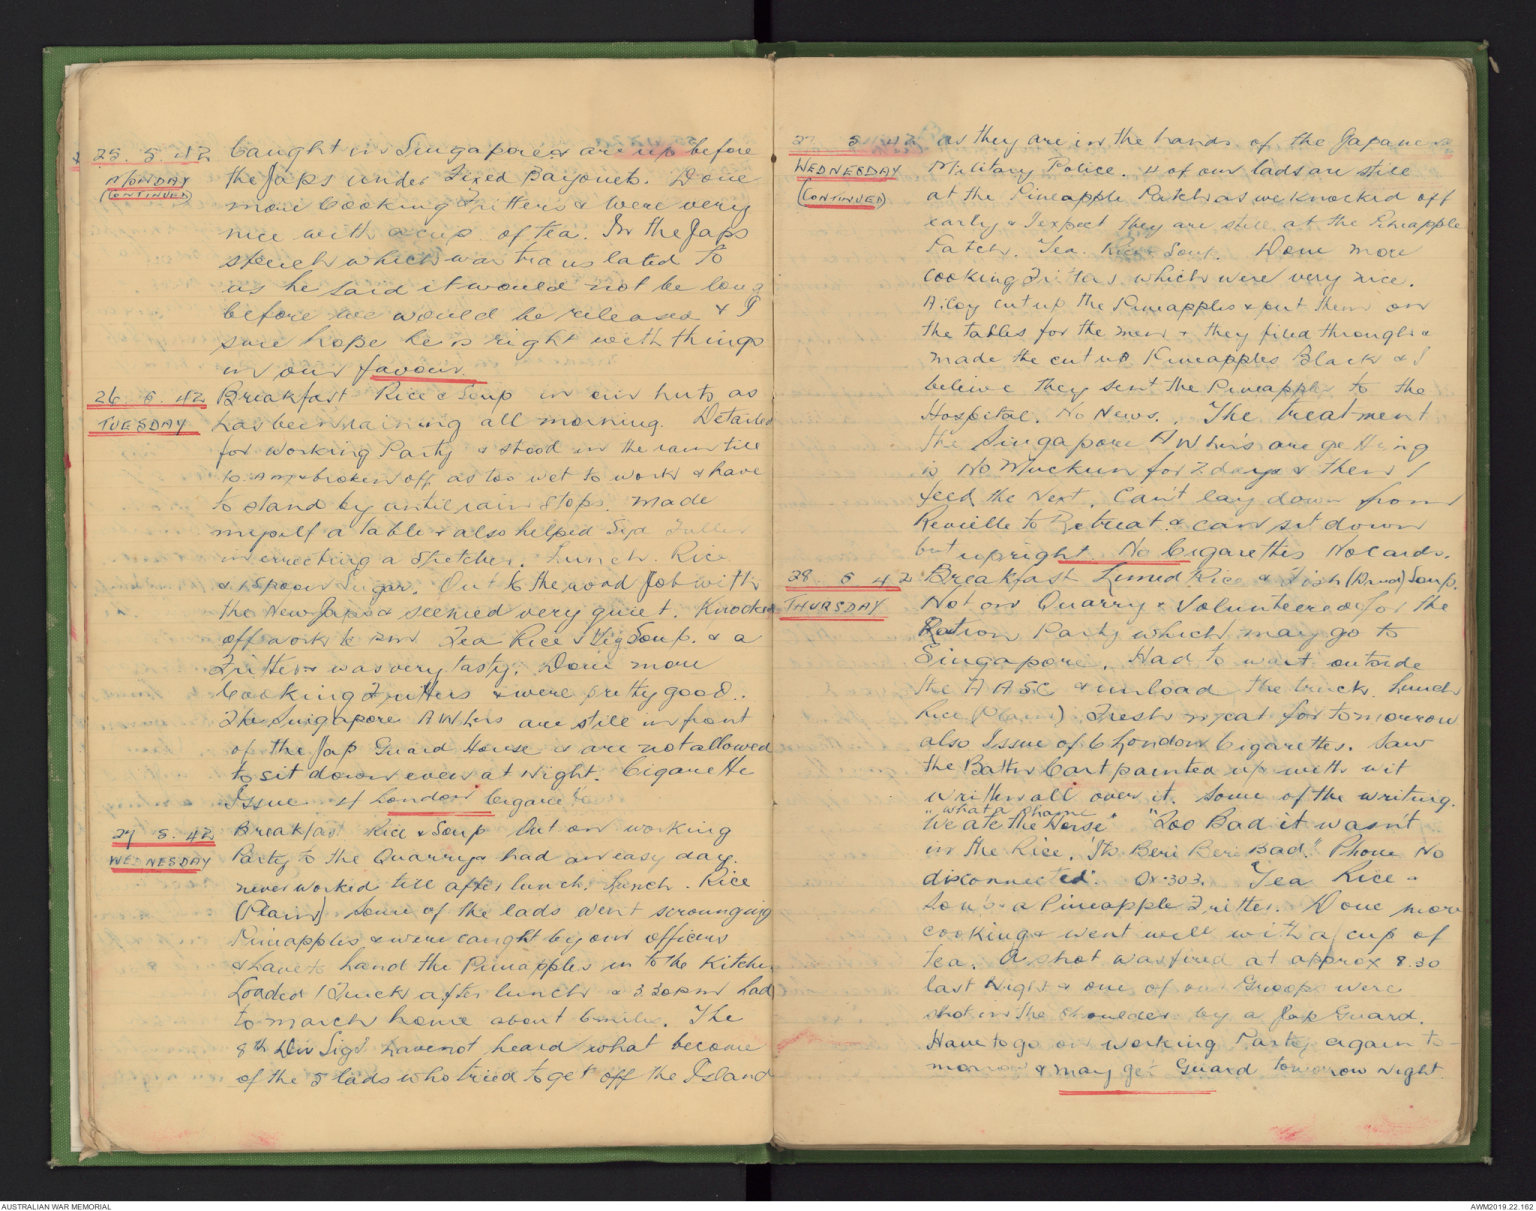 25. 5. 42 Caught in Singapore & are up before
MONDAY the Japs under Fixed Bayonets. Done
(CONTINUED) more Cooking Fritters & were very
nice with a cup of tea. In the Japs
speech which was translated to
us he said it would not be long
before we would be released & I
sure hope he is right with things
in our favour.
26. 5. 42 Breakfast Rice & Soup in our huts as
TUESDAY has been raining all morning. Detailed
for working Party & stood in the rain till
10 AM & broken off as too wet to work & have
to stand by until rain stops. Made
myself a table & also helped Syd Fuller
in erecting a Stretcher. Lunch. Rice
& 1 Spoon Sugar. Out to the road Job with
the New Japs & seemed very quiet. Knocked
off work 6 pm Tea Rice & Veg Soup. & a
Fritter & was very tasty. Done more
Cooking Fritters & were pretty good.
The Singapore AWLers are still in front
of the Jap Guard House & are not allowed
to sit down even at Night. Cigarette
Issue 4 London Cigarettes
27 5. 42 Breakfast Rice & Soup Out on working
WEDNESDAY Party to the Quarry & had an easy day.
never worked till after lunch. Lunch. Rice
(Plain) Some of the lads went scrounging
Pineapples & were caught by our officers
& have to hand the Pineapples in to the Kitchen
Loaded 1 Truck after lunch & 3.30 pm had
to march home about 6 mile. The
8th Div Sigs have not heard what become
of the 5 lads who tried to get off the Island
27 5 42 as they are in the hands of the Japanese
WEDNESDAY Military Police. 4 of our lads are still
(CONTINUED) at the Pineapple Patch as we knocked off
early & I expect they are still at the Pineapple
Patch. Tea. Rice & Soup. Done more
cooking Fritters which were very nice.
A coy cut up the Pineapples & put them on
the tables for the men & they filed through &
made the cut up Pineapples Black & I
believe they sent the Pineapples to the
Hospital. No News. The treatment
the Singapore AWLers are getting
is No Muckun for 2 days & then 1
feed the Next. Can't lay down from
Reveille to Retreat & can sit down
but upright No Cigarettes No Cards.
28 5 42 Breakfast Limed Rice & Fish (Dried) Soup.
THURSDAY Not on Quarry & Volunteered for the
Ration Party which may go to
Singapore. Had to wait outside
the AASC & unload the truck. Lunch
Rice (Plain) Fresh meat for tomorrow
also Issue of 6 London Cigarettes. Saw
the Bath Cart painted up with wit
written all over it. Some of the writing.
"What a Shame
We ate the Horse" "Too Bad it wasn't
in the Rice, "Its Beri Beri Bad." Phone No
disconnected". Or. 303. Tea Rice &
Soup & a Pineapple Fritter. Done more
cooking & went well with a cup of
tea. A shot was fired at approx 8.30
last Night & one of our Groop were
shot in the shoulder by a Jap Guard.
Have to go on working Party again to-
morrow & may get Guard tomorrow night.
AUSTRALIAN WAR MEMORIAL
AWM2019.22.162